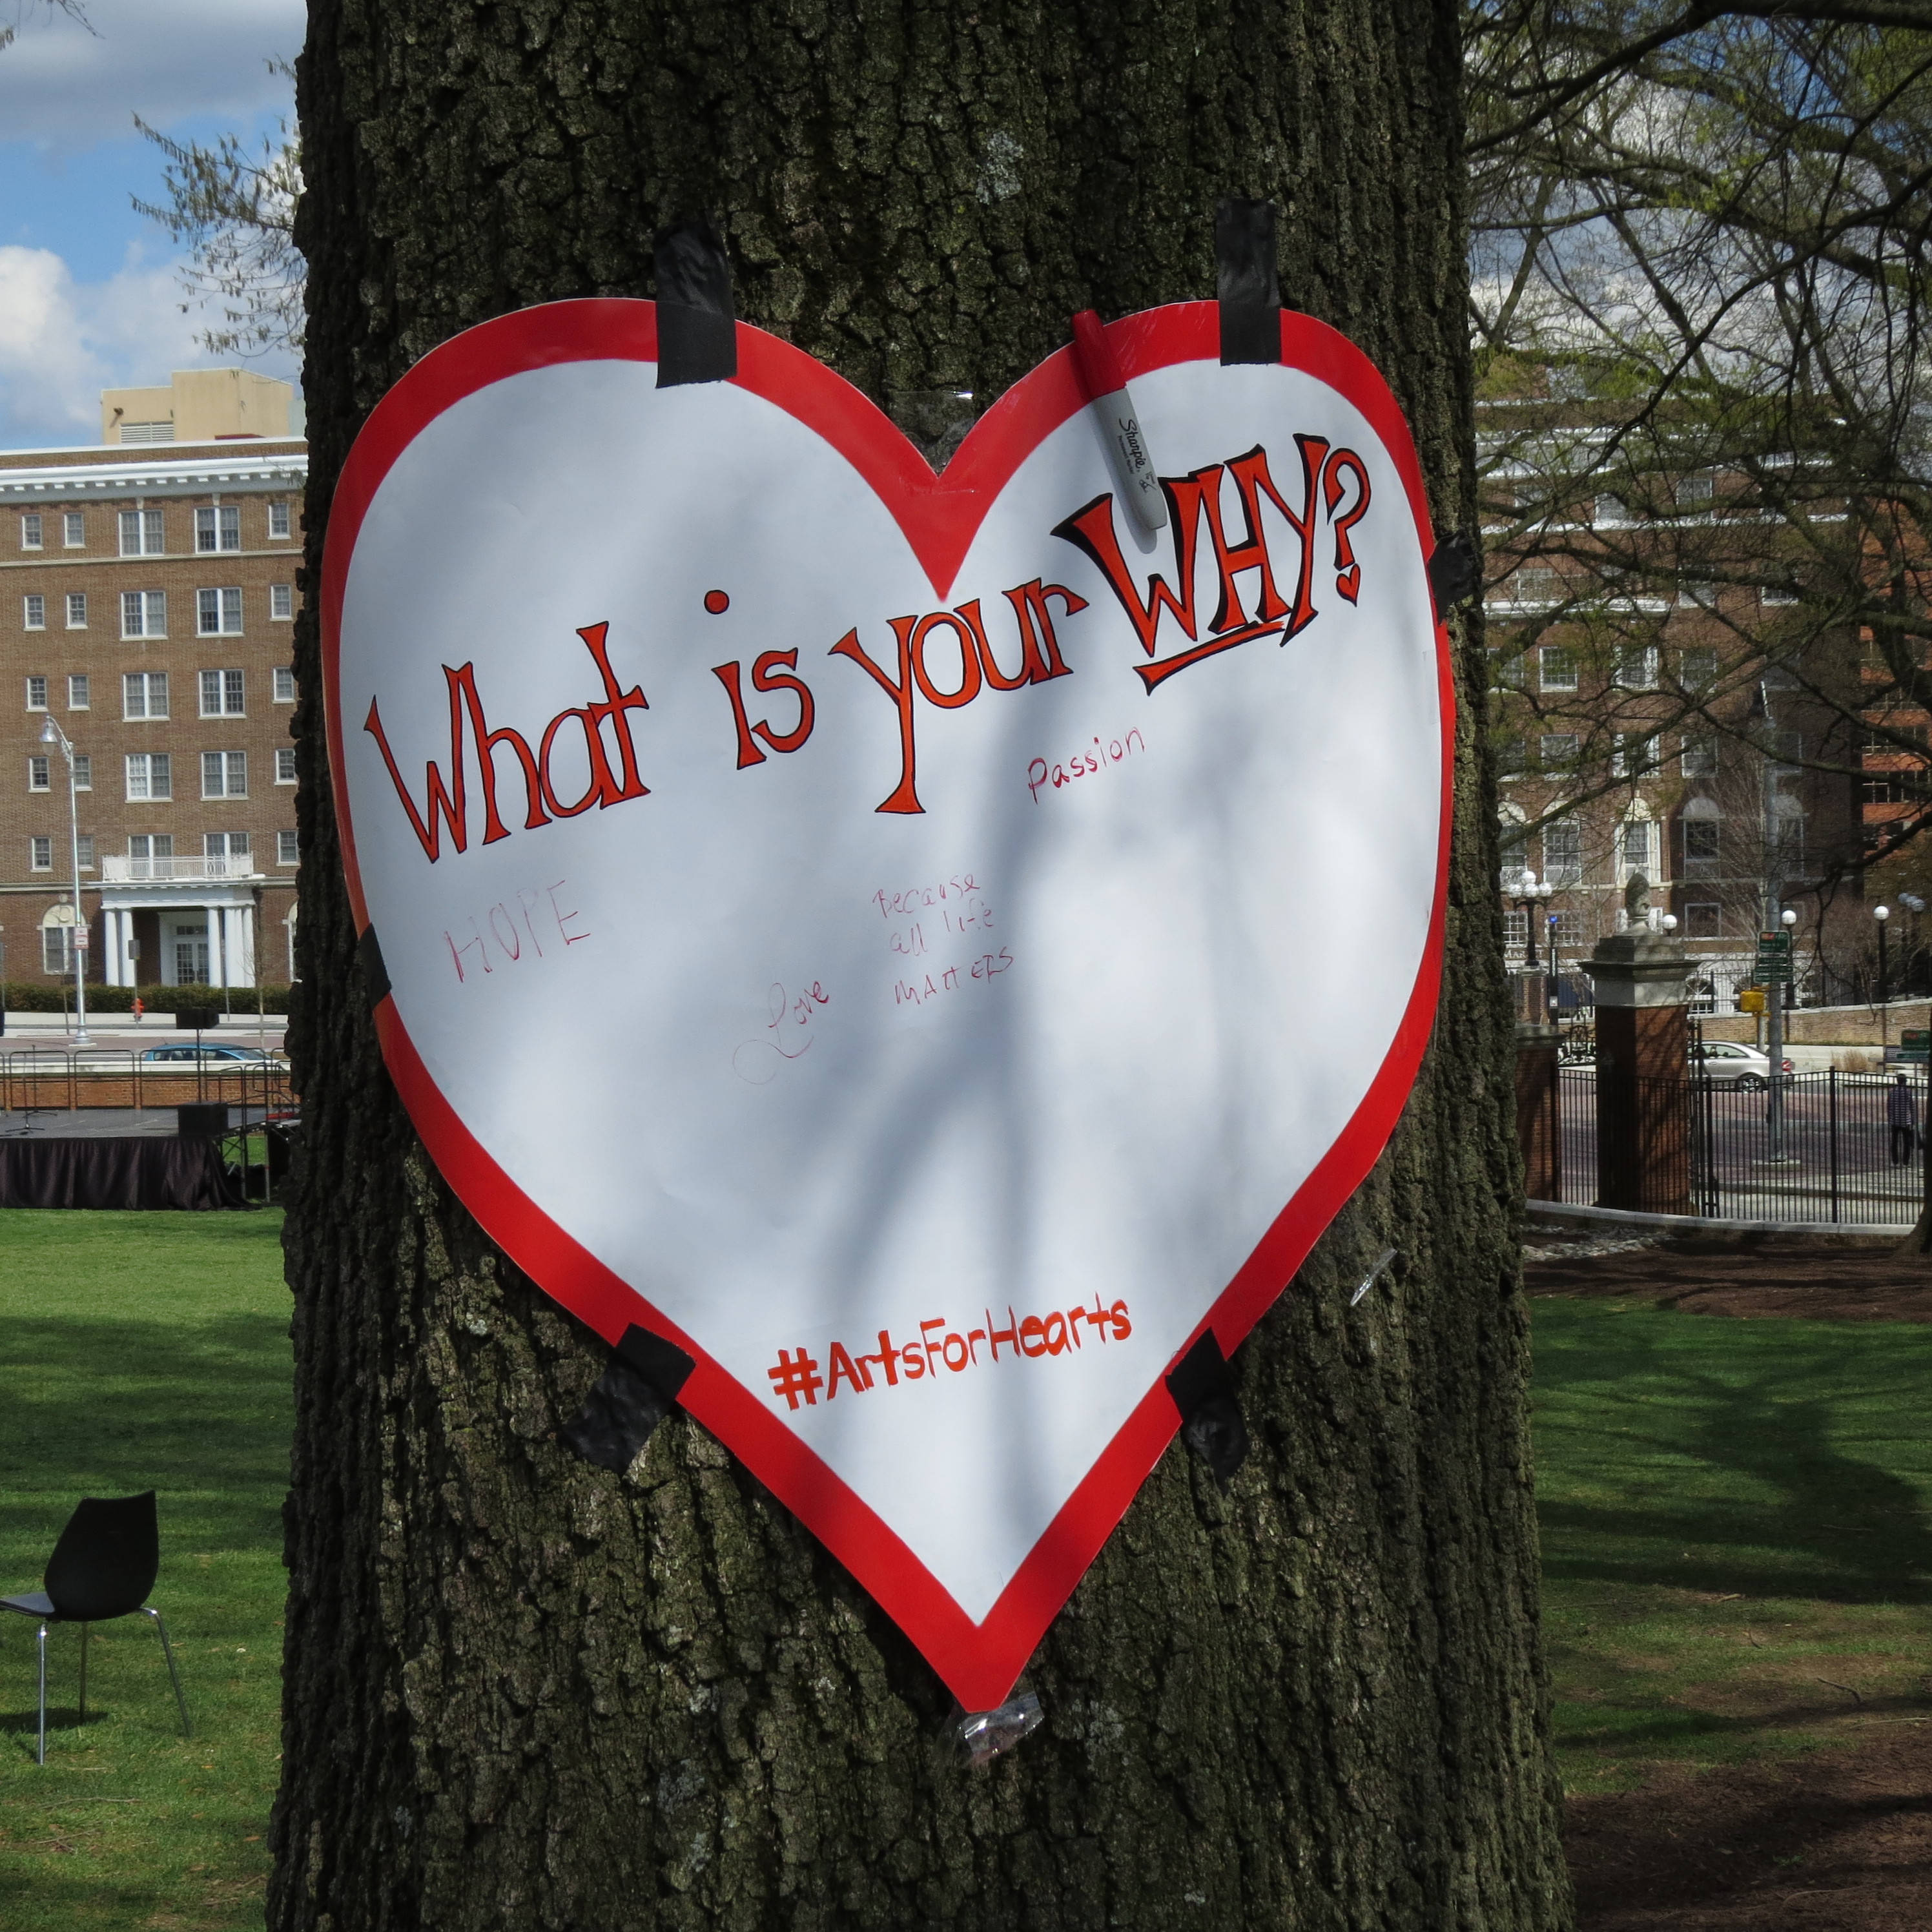 Sharpie
What is your WHY?
Passion
HOPE
Because
all life
MATTERS
Love
#ArtsForHearts